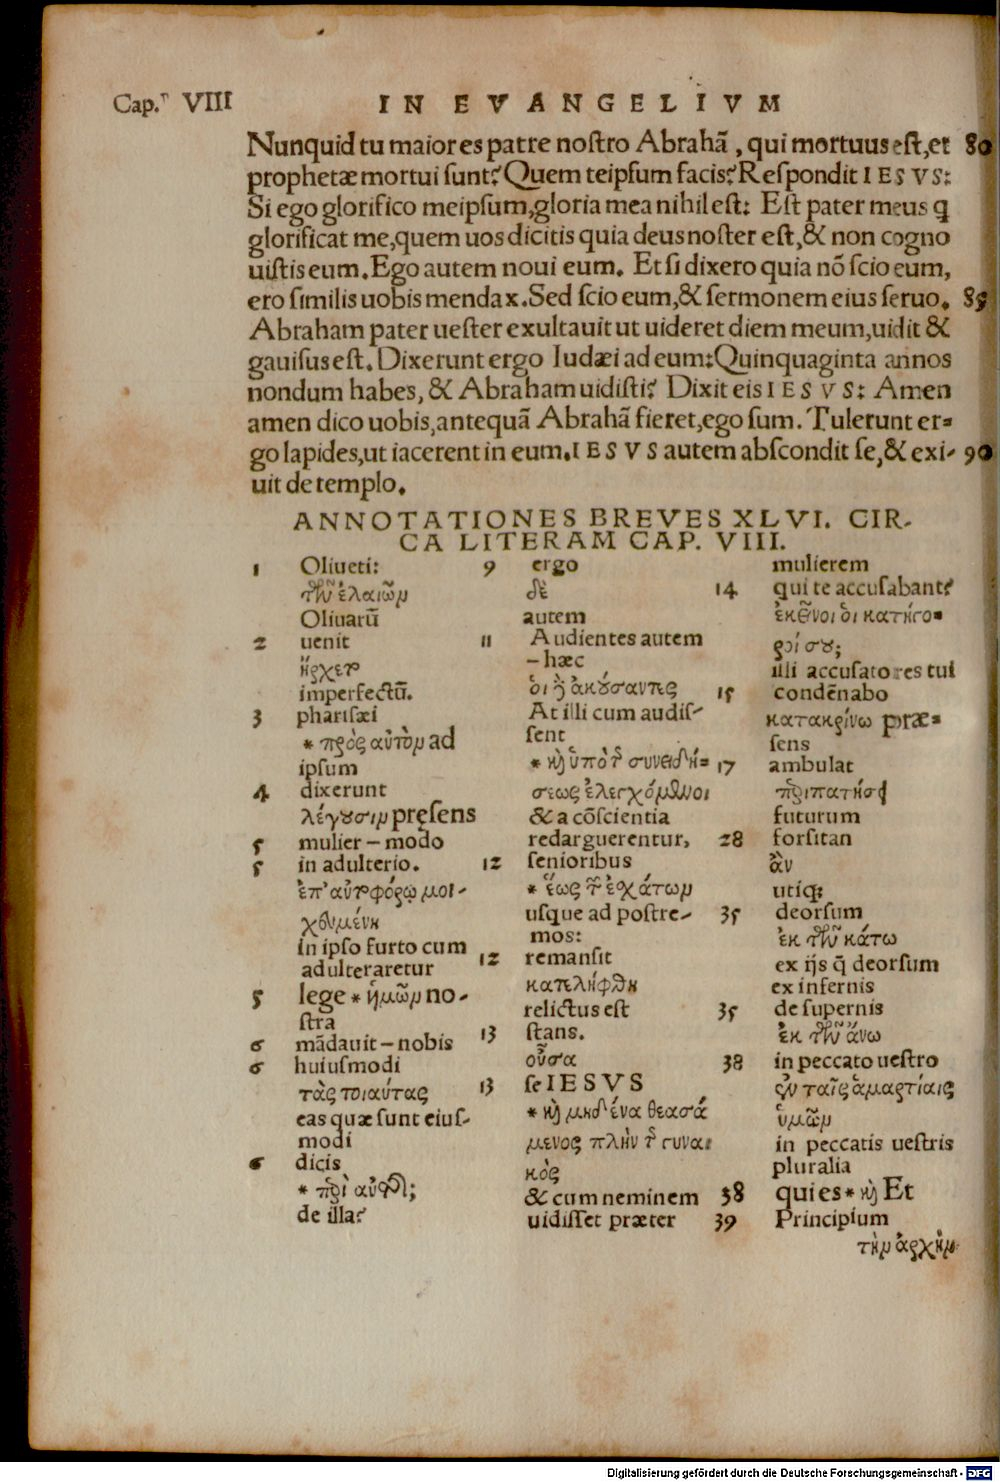 Cap. VIII
IN EVANGELIVM
Nunquid tu maior es patre noſtro Abrahã, qui mortuus eſt, et 80
prophetæ mortui ſunt? Quem teipſum facis? Reſpondit IESVS:
Si ego glorifico meipſum, gloria mea nihil eſt: Eſt pater meus q
glorificat me, quem uos dicitis quia deus noſter eſt, & non cogno
uiſtis eum. Ego autem noui eum. Et ſi dixero quia nõ ſcio eum,
ero ſimilis uobis mendax. Sed ſcio eum, & ſermonem eius ſeruo. 85
Abraham pater ueſter exultauit ut uideret diem meum, uidit &
gauiſus eſt. Dixerunt ergo Iudæi ad eum: Quinquaginta annos
nondum habes, & Abraham uidiſti? Dixit eis IESVS: Amen
amen dico uobis, antequã Abrahã fieret, ego ſum. Tulerunt er=
go lapides, ut iacerent in eum. IESVS autem abſcondit ſe, & exi- 90
uit de templo.
ANNOTATIONES BREVES XLVI. CIR-
CA LITERAM CAP. VIII.
1 Oliueti:
τῶν ἐλαιῶν
Oliuarũ
2 uenit
ἤρχετο
imperfectũ.
3 phariſæi
* πρὸς αὐτὸν ad
ipſum
4 dixerunt
λέγουσιν pręſens
5 mulier – modo
5 in adulterio.
ἐπ' αὐτοφόρῳ μοι-
χουμένη
in ipſo furto cum
adulteraretur
5 lege * ἡμῶν no-
ſtra
6 mãdauit – nobis
6 huiuſmodi
τὰς τοιαύτας
eas quæ ſunt eiuſ-
modi
6 dicis
* περὶ αὐτῆς;
de illa?
9 ergo
δὲ
autem
11 Audientes autem
– hæc
οἱ δὲ ἀκούσαντες
At illi cum audiſ-
ſent
* καὶ ὑπὸ τῆς συνειδή=
σεως ἐλεγχόμενοι
& a cõſcientia
redarguerentur,
12 ſenioribus
* ἕως τῶν ἐσχάτων
uſque ad poſtre-
mos:
12 remanſit
κατελήφθη
relictus eſt
13 ſtans.
οὖσα
13 ſe IESVS
* καὶ μηδένα θεασά
μενος πλὴν τῆς γυναι
κὸς
& cum neminem
uidiſſet præter
mulierem
14 qui te accuſabant?
ἐκεῖνοι οἱ κατήγο=
ροί σου;
illi accuſatores tui
15 condẽnabo
κατακρίνω præ=
ſens
17 ambulat
περιπατήσει
futurum
28 forſitan
ἂν
utiq;
35 deorſum
ἐκ τῶν κάτω
ex ijs q̃ deorſum
ex infernis
35 de ſupernis
ἐκ τῶν ἄνω
38 in peccato ueſtro
ἐν ταῖς ἁμαρτίαις
ὑμῶν
in peccatis ueſtris
pluralia
38 quies * καὶ Et
39 Principium
τὴν ἀρχὴν
Digitalisierung gefördert durch die Deutsche Forschungsgemeinschaft - DFG